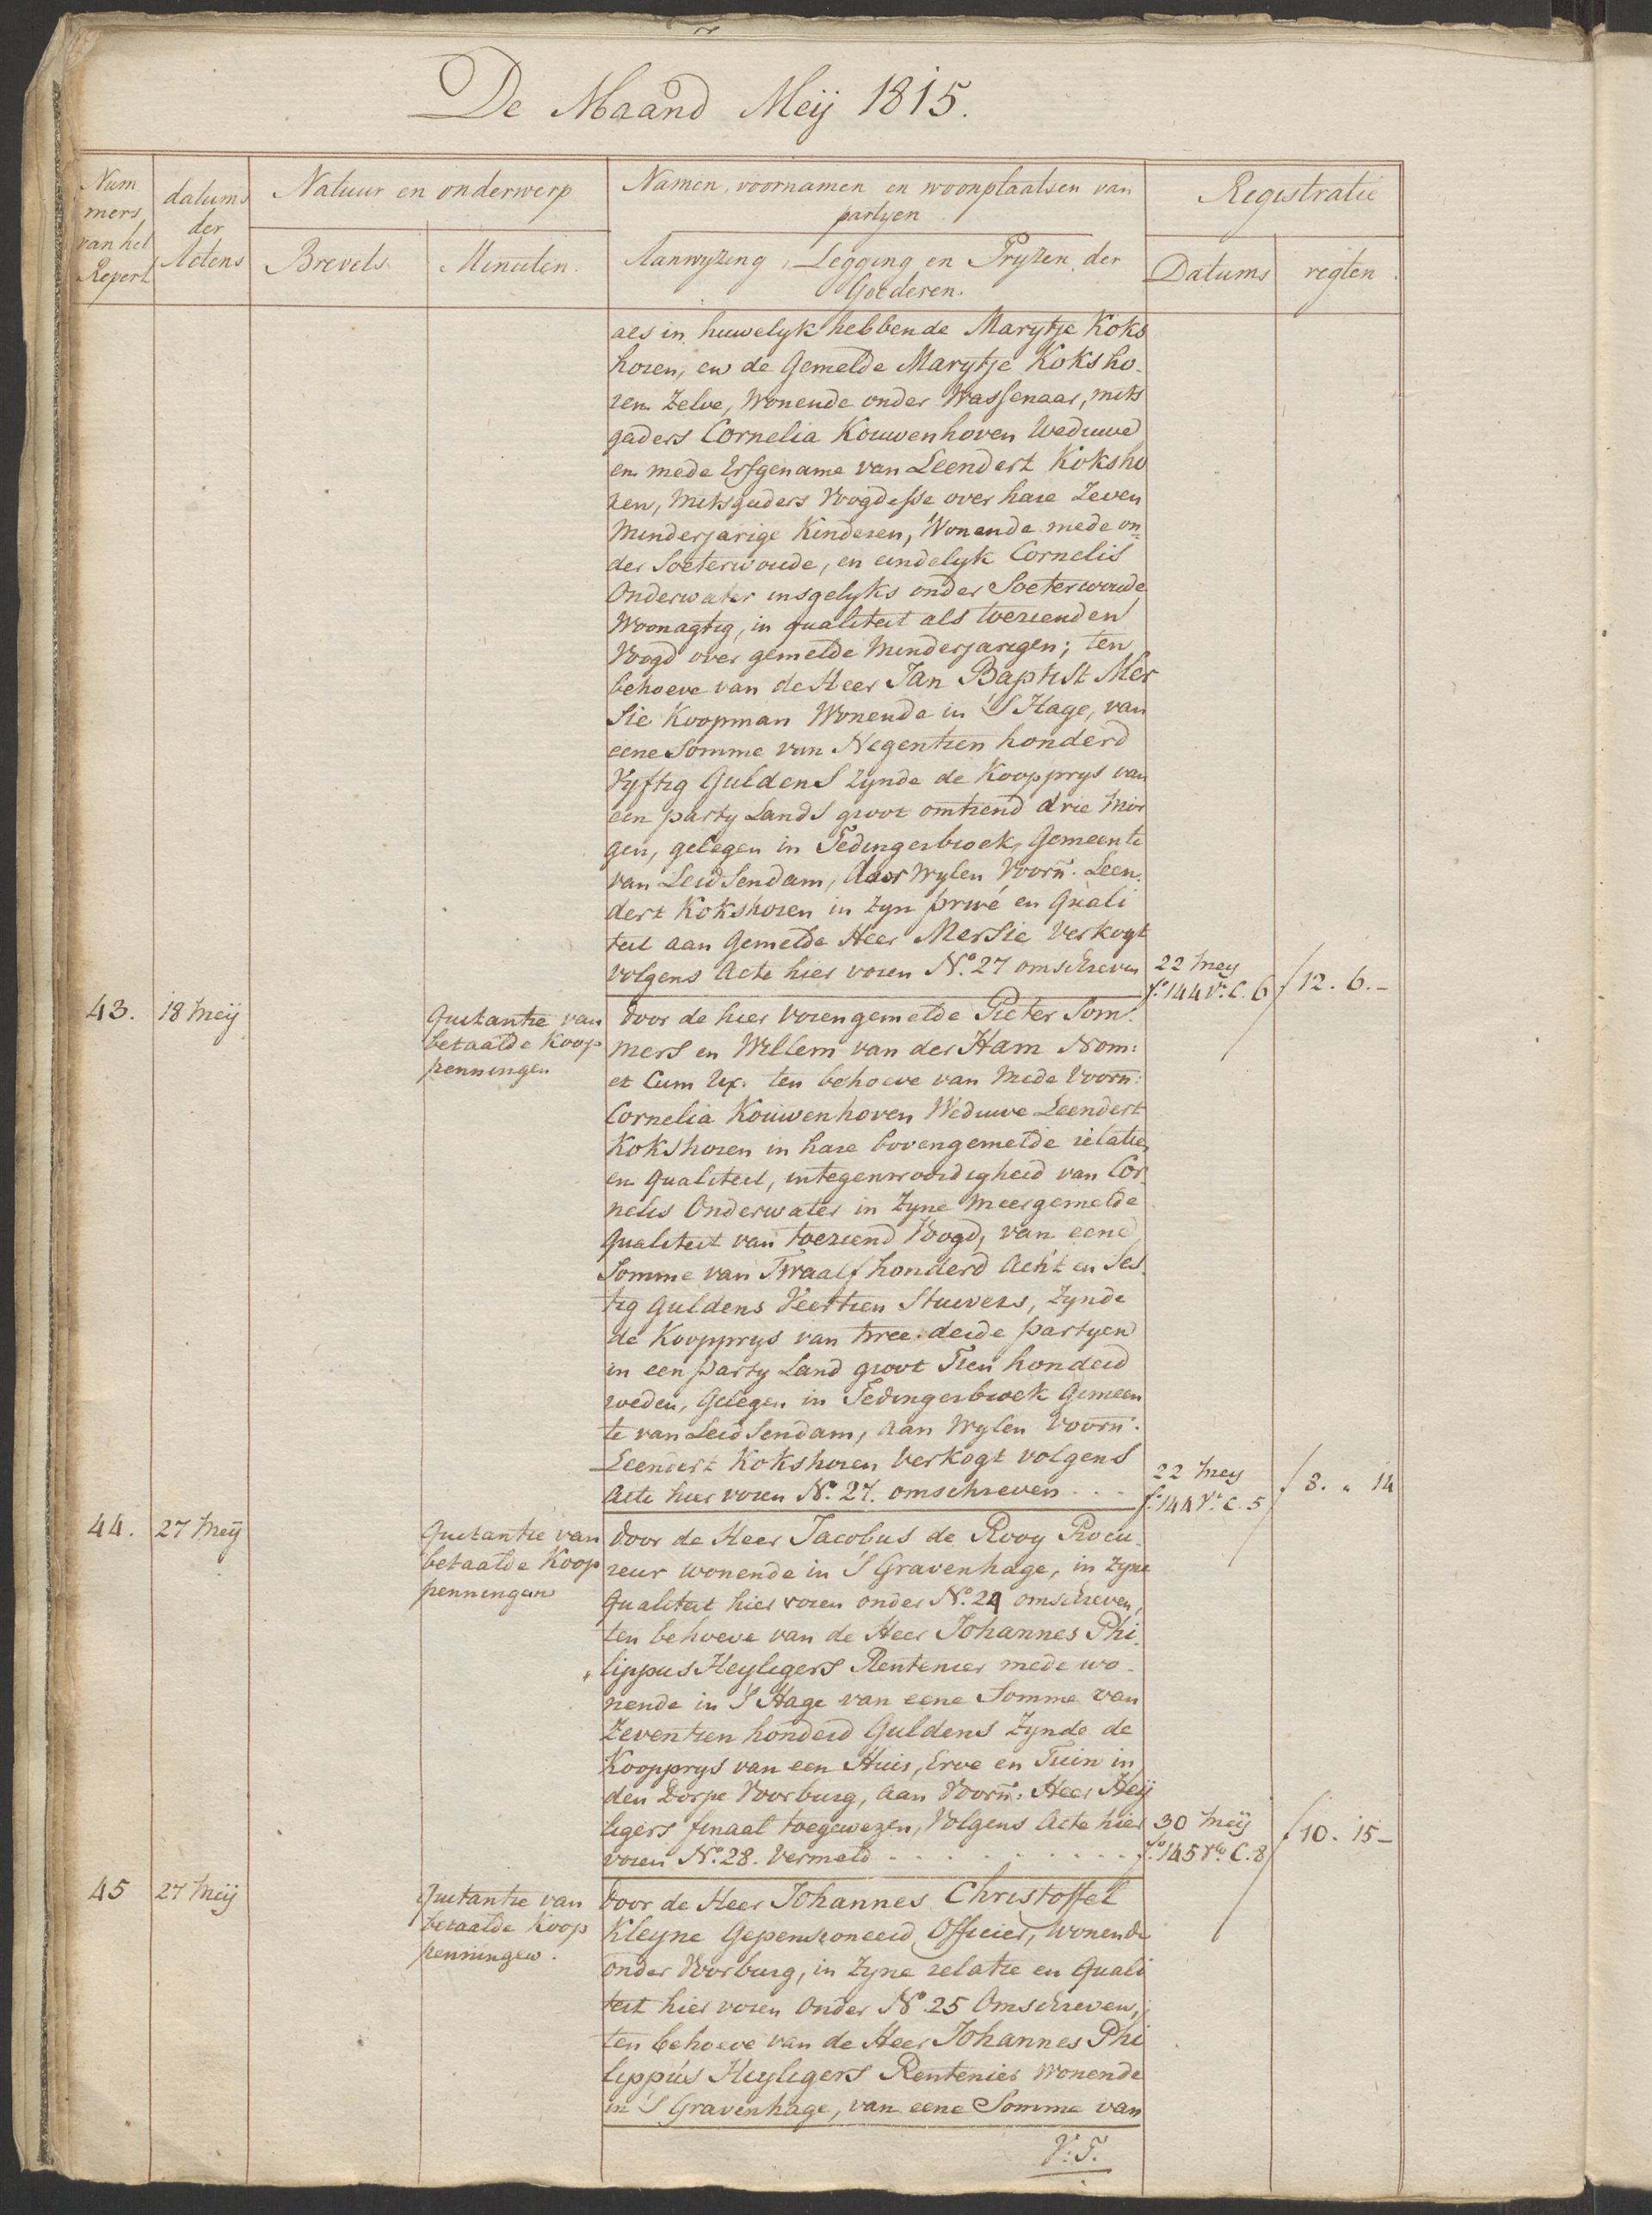 De Maand Meij 1815.
Num
mers,
van het
Repert
datums
der
Actens
Natuur en onderwerp
Brevets.
Minuten.
Namen, voornamen en woonplaatsen van
partyen
Aanwyzing, Legging en Pryzen der
Goederen.
Registratie
Datums
regten.
als in huwelyk hebbende Marytje Koks
horen, en de Gemelde Marytje Koksho-
ren Zelve, Wonende onder Wassenaar, mits
gaders Cornelia Kouwenhoven Weduwe
en mede Erfgename van Leendert Koksho
ren, Mitsgaders Voogdesse over hare Zeven
Minderjarige Kinderen, Wonende mede on=
der Soeterwoude, en eindelyk Cornelis
Onderwater insgelyks onder Soeterwoude
Woonagtig, in qualiteit als toezienden
Voogd over gemelde Minderjarigen; ten
behoeve van de Heer Jan Baptist Mer
sie Koopman Wonende in 'S Hage, van
eene Somme van Negentien honderd
Vyftig Guldens zynde de Koopprys van
een party Lands groot omtrend drie Mor
gen, gelegen in Tedingerbroek, Gemeente
van Leidsendam, door Wylen Voorn: Leen-
dert Kokshoren in Zyn privé en Quali
teit aan Gemelde Heer Mersie Verkogt
volgens Acte hier voren No. 27 omschreven
22 Mey
fo. 144 Vo. C. 6
f 12. 6. -
43.
18 Meij
Quitantie van
betaalde Koop
penningen
door de hier voren gemelde Pieter Som-
mers en Willem van der Ham Nom:
et Cum Ux. ten behoeve van Mede Voorn:
Cornelia Kouwenhoven Weduwe Leendert
Kokshoren in hare bovengemelde relatie
en Qualiteit, in tegenwoordigheid van Cor-
nelis Onderwater in Zyne Meergemelde
Qualiteit van toeziend Voogd, van eene
Somme van Twaalf honderd Acht en Ses-
tig Guldens Veertien Stuivers, Zynde
de Koopprys van twee derde partyen
in een party Land groot Tien honderd
roeden, Gelegen in Tedingerbroek Gemeen
te van Leidsendam, aan Wylen Voorn:
Leendert Kokshoren Verkogt volgens
Acte hier voren No. 27. omschreven . . .
22 Mey
fo. 144 Vo. C. 5
f 8. " 14
44.
27 Meij
Quitantie van
betaalde Koop
penningen
door de Heer Jacobus de Rooy Procu-
reur wonende in 'S Gravenhage, in Zyne
Qualiteit hier voren onder No. 24 omschreven,
ten behoeve van de Heer Johannes Phi-
lippus Heyligers Rentenier mede wo-
nende in 'S Hage van eene Somme van
Zeventien honderd Guldens Zynde de
Koopprys van een Huis, Erve en Tuin in
den Dorpe Voorburg, Aan Voorn: Heer Heij
ligers finaal toegewezen, Volgens Acte hier
voren No. 28. Vermeld . . . . . . . .
30 Meij
fo. 145 Vo. C. 8
f 10. 15 -
45
27 Meij
Quitantie van
betaalde Koop
penningen.
door de Heer Johannes Christoffel
Kleyne Gepensioneerd Officier, Wonende
onder Voorburg, in Zyne relatie en Quali
teit hier voren onder No. 25 Omschreven,
ten behoeve van de Heer Johannes Phi
lippus Heyligers Rentenier Wonende
in 'S Gravenhage, van eene Somme van
V: T.